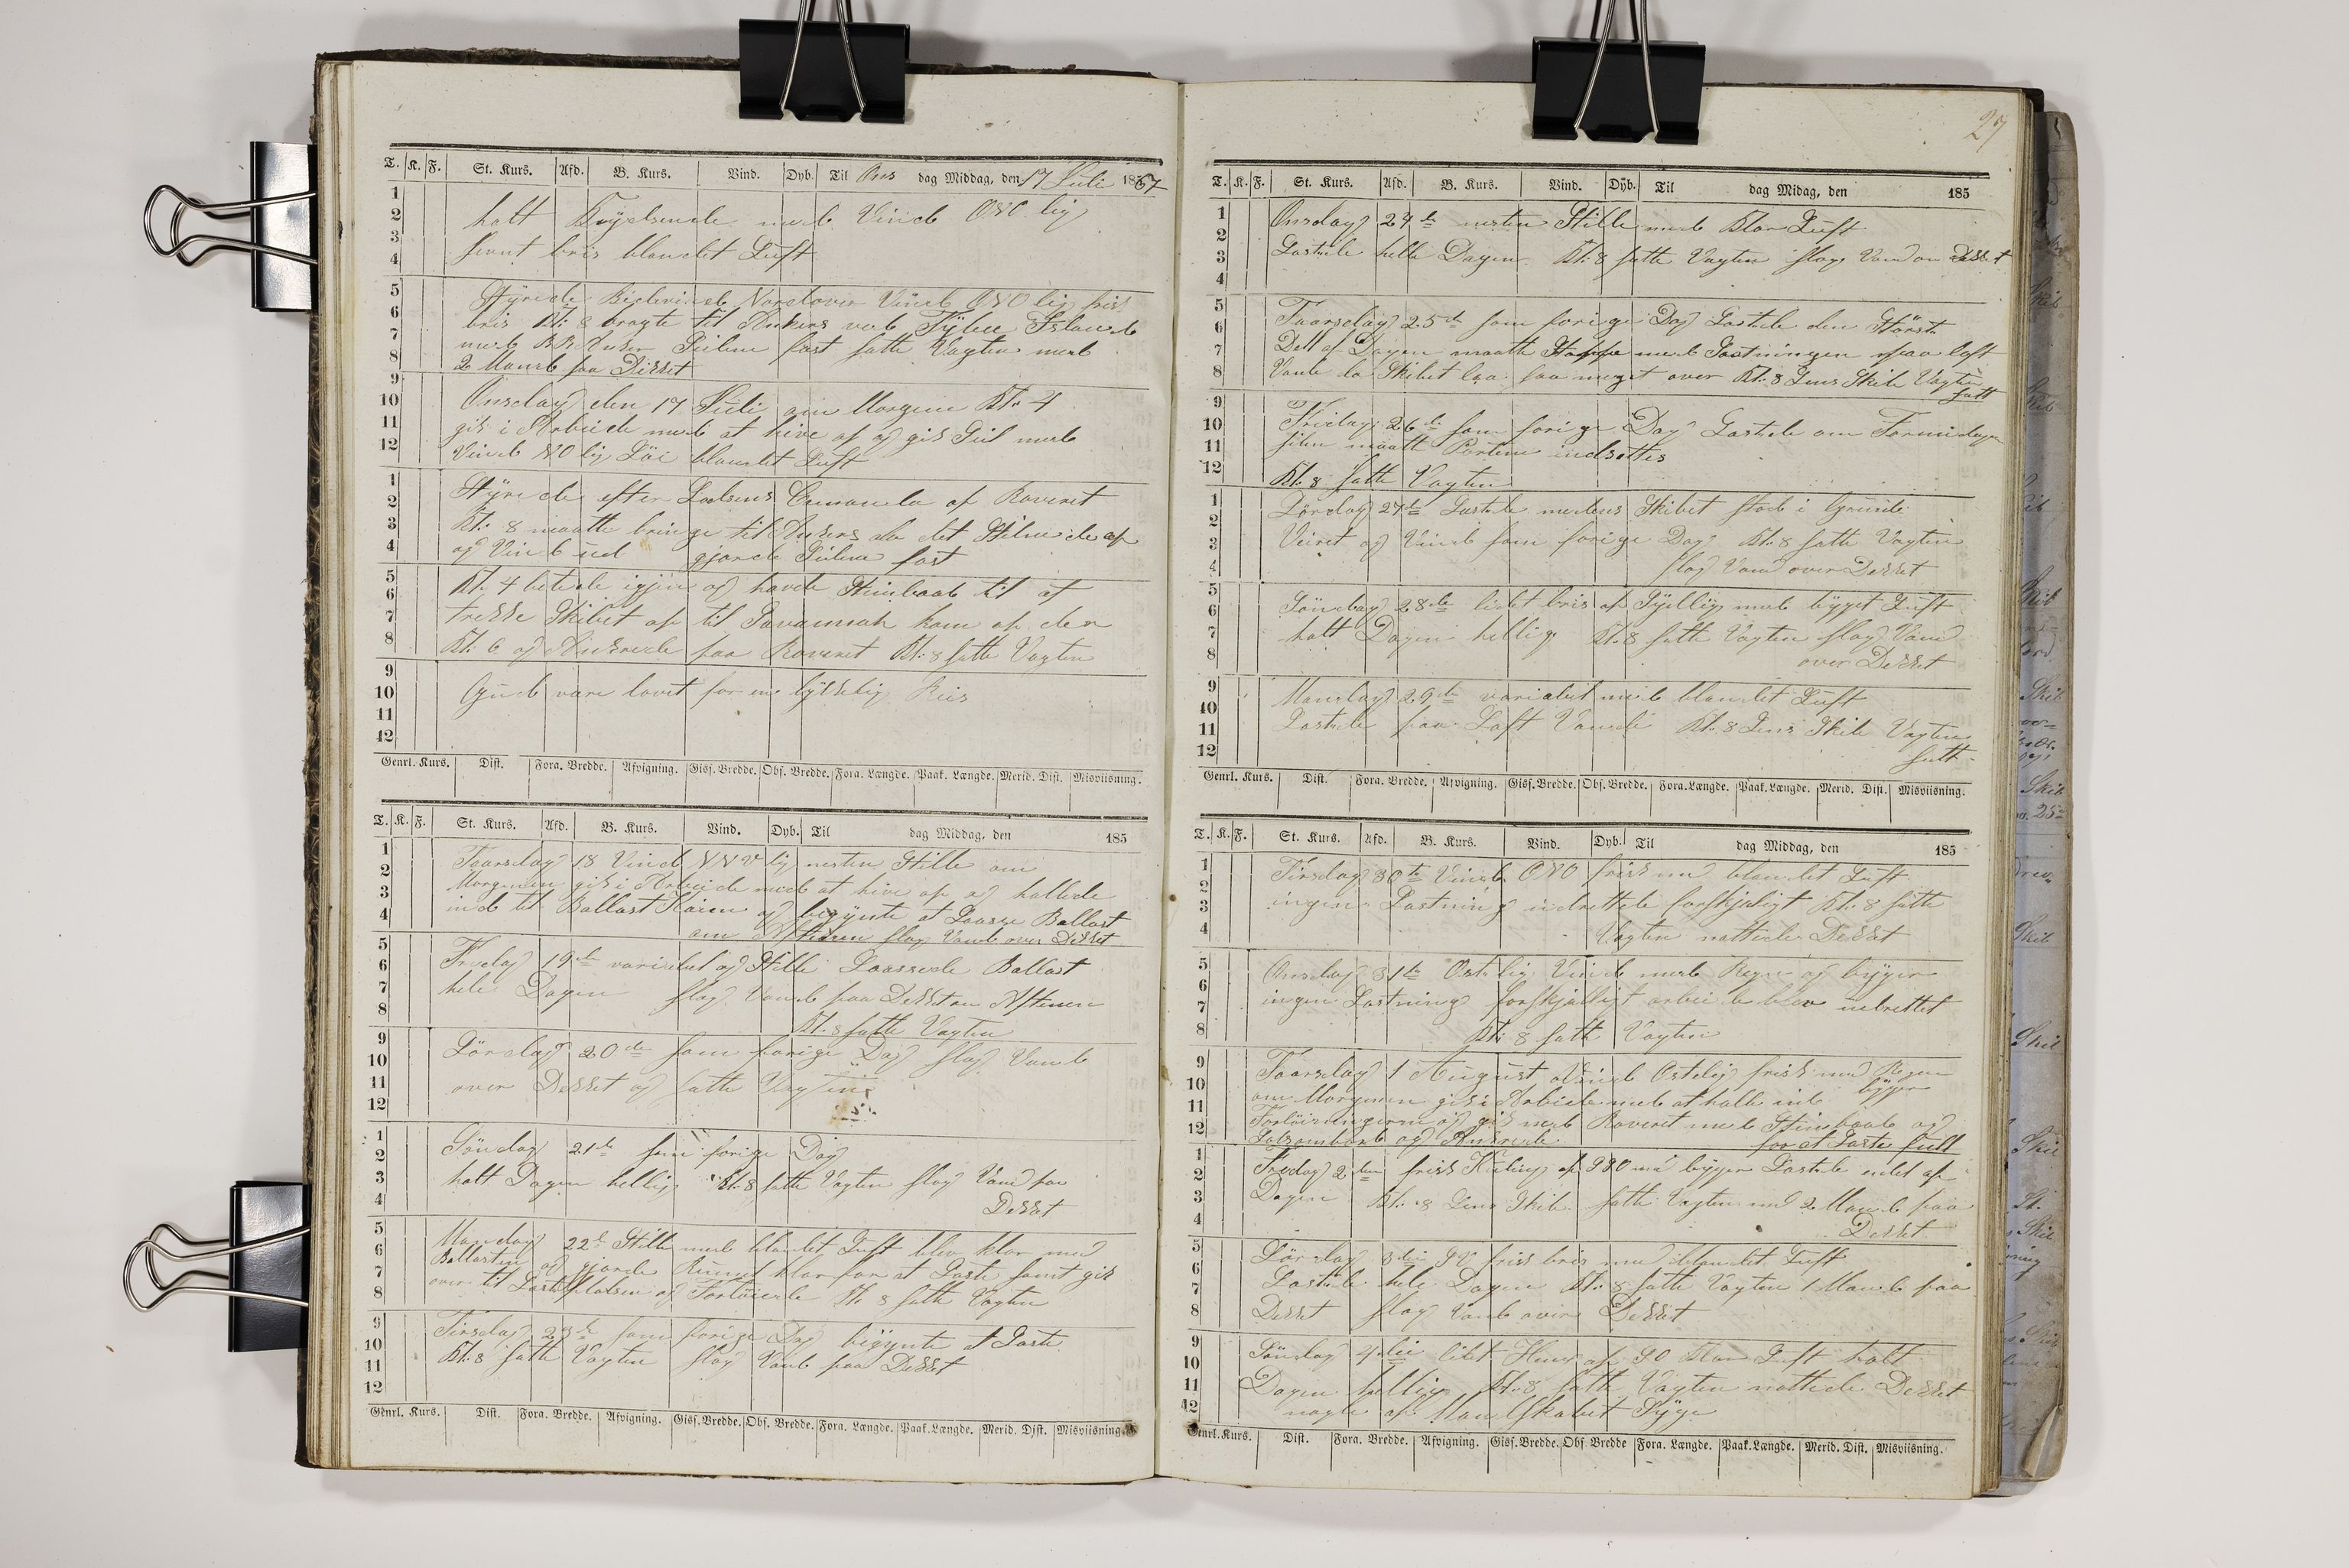 T. K. F. St. Kurs. Afd. B. Kurs. Vind. Dyb. Til Ons dag Middag, den 17 Juli 1867
1
2
3
4
holt Krydsende med Vind ONO lig
samt bris blandet Luft
5
6
7
8
Styrede Bidevind Nordover Vind ONO lig frisk
bris Kl: 8 bragte til Ankers ved Tybee Island
med Seilene fast satte Vagten med
2 Mand paa Dekket
9
10
11
12
Onsdag den 17 Juli om Morgenen Kl: 4
gik i Arbeide med at hive op og gik Seil med
Vind NO lig Löi blandet Luft
1
2
3
4
Styrede efter Lodsens Comando op Raveret
Kl: 8 maatte bringe til Ankers da det Stilnede af
og Vind ud gjorde Seilene fast
5
6
7
8
Kl: 4 lettede igjen og havde Stimbaad til at
trekke Skibet op til Savannah kom op der
Kl: 6 og Ankrede paa Raveret Kl: 8 satte Vagten
9
10
11
12
Gud være lovet for en lykkelig Reis
Genrl. Kurs. Dist. Fora. Bredde. Afvigning. Gisf. Bredde. Obs. Bredde. Fora. Længde. Paak. Længde. Merid. Dist. Misviisning.
T. K. F. St. Kurs. Afd. B. Kurs. Vind. Dyb. Til dag Middag, den 185
1
2
3
4
Torsdag 18 Vind NNV lig nesten Stille om
Morgenen gik i Arbeide med at hive op og hallede
ind til Ballast Kaien og begynte at Laasse Ballast
om Aftenen slog Vand over Dekket
5
6
7
8
Fredag 19de variabel og Stille Laassede Ballast
hele Dagen slog Vand paa Dekket om Aftenen
Kl: 8 satte Vagten
9
10
11
12
Lördag 20de som forige Dag slog Vand
over Dekket og satte Vagten
1
2
3
4
Söndag 21de som forige Dag
holt Dagen hellig Kl: 8 satte Vagten slog Vand paa
Dekket
5
6
7
8
Mandag 22de Stille med blandet Luft blev klar med
Ballasten og gjorde Rumet klar for at Laste samt gik
over til Lastepladsen og Fortöiede Kl: 8 satte Vagten
9
10
11
12
Tirsdag 23de som forige Dag begynte at Laste
Kl: 8 satte Vagten slog Vand paa Dekket
Genrl. Kurs. Dist. Fora. Bredde. Afvigning. Gisf. Bredde. Obs. Bredde. Fora. Længde. Paak. Længde. Merid. Dist. Misviisning.
27
T. K. F. St. Kurs. Afd. B. Kurs. Vind. Dyb. Til dag Midag, den 185
1
2
3
4
Onsdag 24de nesten Stille med Klar Luft
Lastede helle Dagen Kl: 8 satte Vagten slog Vand om Dekket
5
6
7
8
Taarsdag 25de som forige Dag Lastede den Störst
Dell af Dagen maatte Stoppe med Lastningen paa loft
Vande da Skibet laa saa meget over Kl: 8 Lens Skib Vagten
satt
9
10
11
12
Fridag 26de som forige Dag Lastede om Formidagen
siden maatt Portene indsettes
Kl: 8 satte Vagten
1
2
3
4
Lördag 27de Lastede medens Skibet stod i Grunde
Veiret og Vind som forige Dag Kl: 8 satte Vagten
slog Vand over Dekket
5
6
7
8
Söndag 28de lidet bris af Sydlig med bygget Luft
holt Dagen hellig Kl: 8 satte Vagten slog Vand
over Dekket
9
10
11
12
Mandag 29de variabel med blandet Luft
Lastede paa Loft Vande Kl: 8 Lens Skib Vagten
satt
Genrl. Kurs. Dist. Fora. Bredde. Afvigning. Gisf. Bredde. Obs. Bredde. Fora. Længde. Paak. Længde. Merid. Dist. Misviisning.
T. K. F. St. Kurs. Afd. B. Kurs. Vind. Dyb. Til dag Middag, den 185
1
2
3
4
Tirsdag 30te Vind ONO frisk med blandet Luft
ingen Lastning udrettede forskjeligt Kl: 8 satte
Vagten vattede Dekket
5
6
7
8
Onsdag 31te Ostlig Vind med Regn og byger
ingen Lastning forskjelligt arbeide blev udrettet
Kl: 8 satt Vagten
9
10
11
12
Taarsdag 1 August Vind Ostelig frisk med Regn
byger
om Morgenen gik i Arbeide med at halle ind
Fortöiningerne og gik ned Raveret med Stimbaad og
og Ankrede. for at Laste full
1
2
3
4
Fredag 2den frisk Kuling af SSO med byger Lastede endel af
Dagen Kl: 8 Lens Skib satte Vagten med 2 Mand paa
Dekket
5
6
7
8
Lördag 3die SV frisk bris med blandet Luft
Lastede hele Dagen Kl: 8 satte Vagten 1 Mand paa
Dekket slog Vand over Dekket
9
10
11
12
Söndag 4die lidet af SO Klar Luft holt
Dagen hellig Kl: 8 satte Vagten vattede Dekket
nogle af Mandskabet Syge
Genrl. Kurs. Dist. Fora. Bredde. Afvigning. Gisf. Bredde. Obs. Bredde Fora. Længde. Paak. Længde. Merid. Dist. Misviisning.